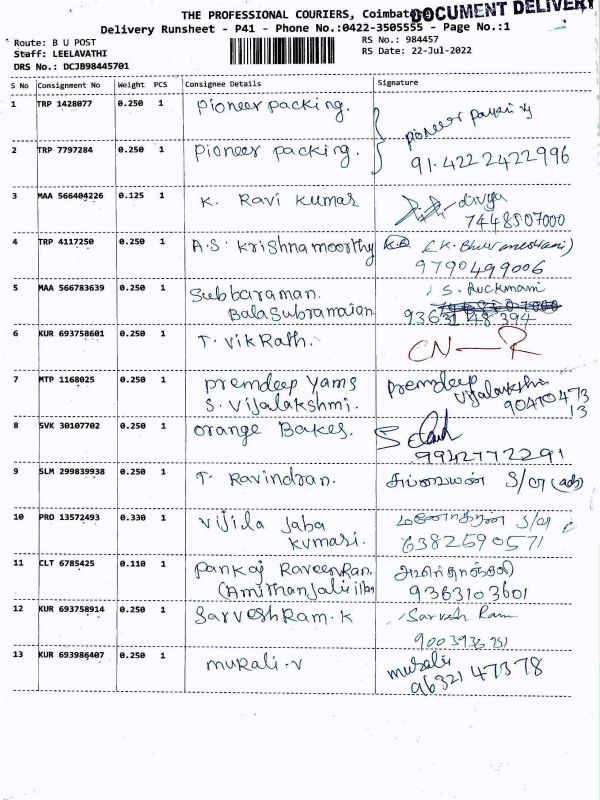 THE PROFESSIONAL COURIERS, Coimbat
DOCUMENT DELIVERY
Delivery Runsheet - P41 - Phone No.:0422-3505555 - Page No.:1
Route: B U POST
RS No.: 984457
Staff: LEELAVATHI
RS Date: 22-Jul-2022
DRS No.: DCJB98445701
S No Consignment No Weight PCS Consignee Details Signature
1 TRP 1428077 0.250 1 pioneer packing.
2 TRP 7797284 0.250 1 pioneer packing.
91.422 2422996
3 MAA 566404226 0.125 1 K. Ravi Kumar divya
7448507000
4 TRP 4117250 0.250 1 A.S. Krishnamoorthy
9790499006
5 MAA 566783639 0.250 1 Subbaraman. S. Ruckmani
Balasubramaian 93631 48 394
6 KUR 693758601 0.250 1 T. Vikrath. CN-R
7 MTP 1168025 0.250 1 premdeep Yams premdeep
S. Vijalakshmi. Vijalakshmi
90470 473
13
8 SVK 30107702 0.250 1 orange Bakes.
9942772291
9 SLM 299839938 0.250 1 T. Ravindran. S/O
10 PRO 13572493 0.330 1 Vijila Jaba மனோகரன் S/O
kumari. 6382590571
11 CLT 6785425 0.110 1 Pankaj Raveenran.
9363103601
12 KUR 693758914 0.250 1 SarveshRam.K Sarvesh Ram
13 KUR 693986407 0.250 1 murali.v murali
96321 47378